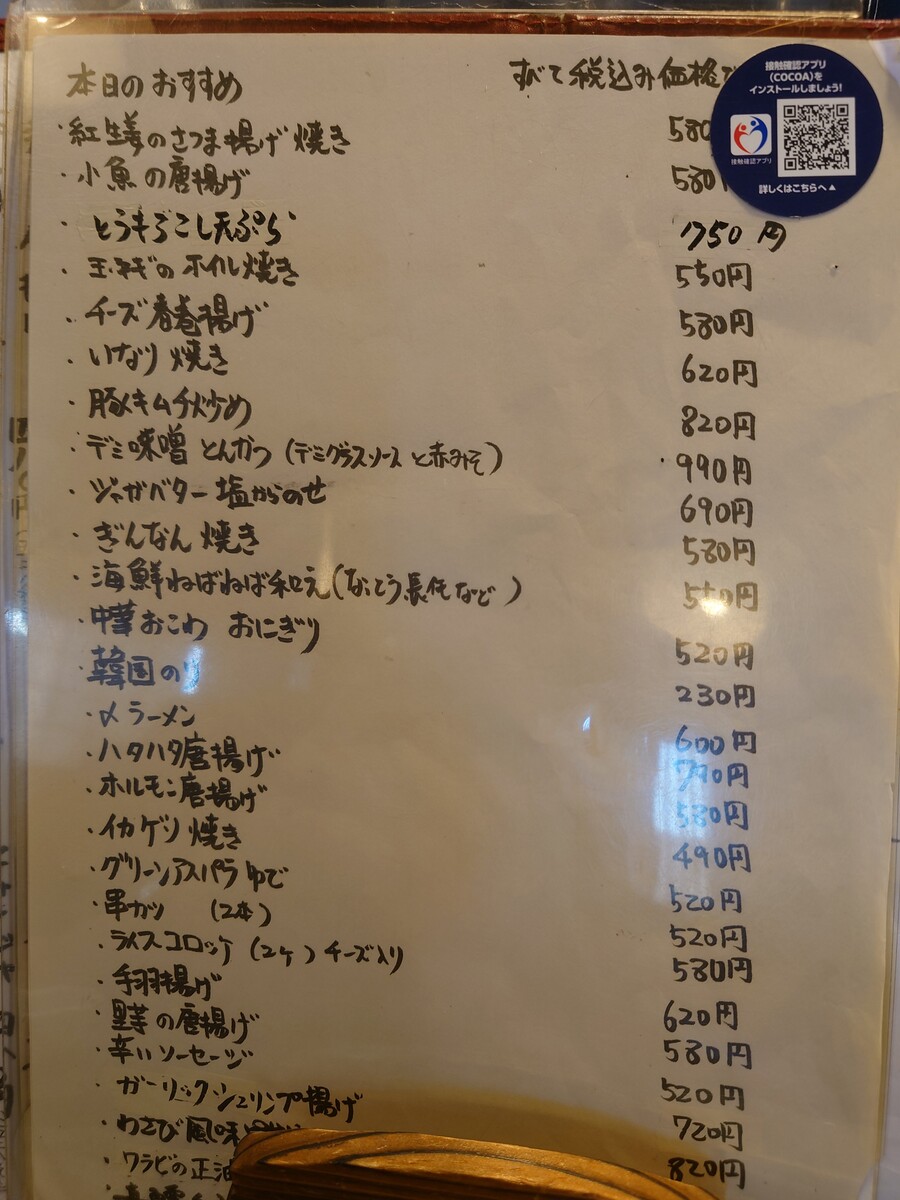 本日のおすすめ すべて税込み価格で
・紅生姜のさつま揚げ 焼き 580
・小魚の唐揚げ 580円
・とうもろこし天ぷら 750円
・玉ネギのホイル焼き 550円
・チーズ春巻揚げ 580円
・いなり焼き 620円
・豚キムチ炒め 820円
・デミ味噌とんかつ (デミグラスソースと赤みそ) 990円
・ジャガバター塩からのせ 690円
・ぎんなん焼き 580円
・海鮮ねばねば和え(なっとう長芋など) 550円
・中華おこわ おにぎり 520円
・韓国のり 230円
・〆ラーメン 600円
・ハタハタ唐揚げ 790円
・ホルモン唐揚げ 580円
・イカゲソ焼き 490円
・グリーンアスパラゆで 520円
・串カツ (2本) 520円
・ライスコロッケ (2ケ) チーズ入り 580円
・手羽揚げ 620円
・里芋の唐揚げ 580円
・辛いソーセージ 520円
・ガーリックシュリンプ揚げ 720円
・わさび風味 820円
・ワラビの正油
接触確認アプリ
(COCOA)を
インストールしましょう!
接触確認アプリ
詳しくはこちらへ▲